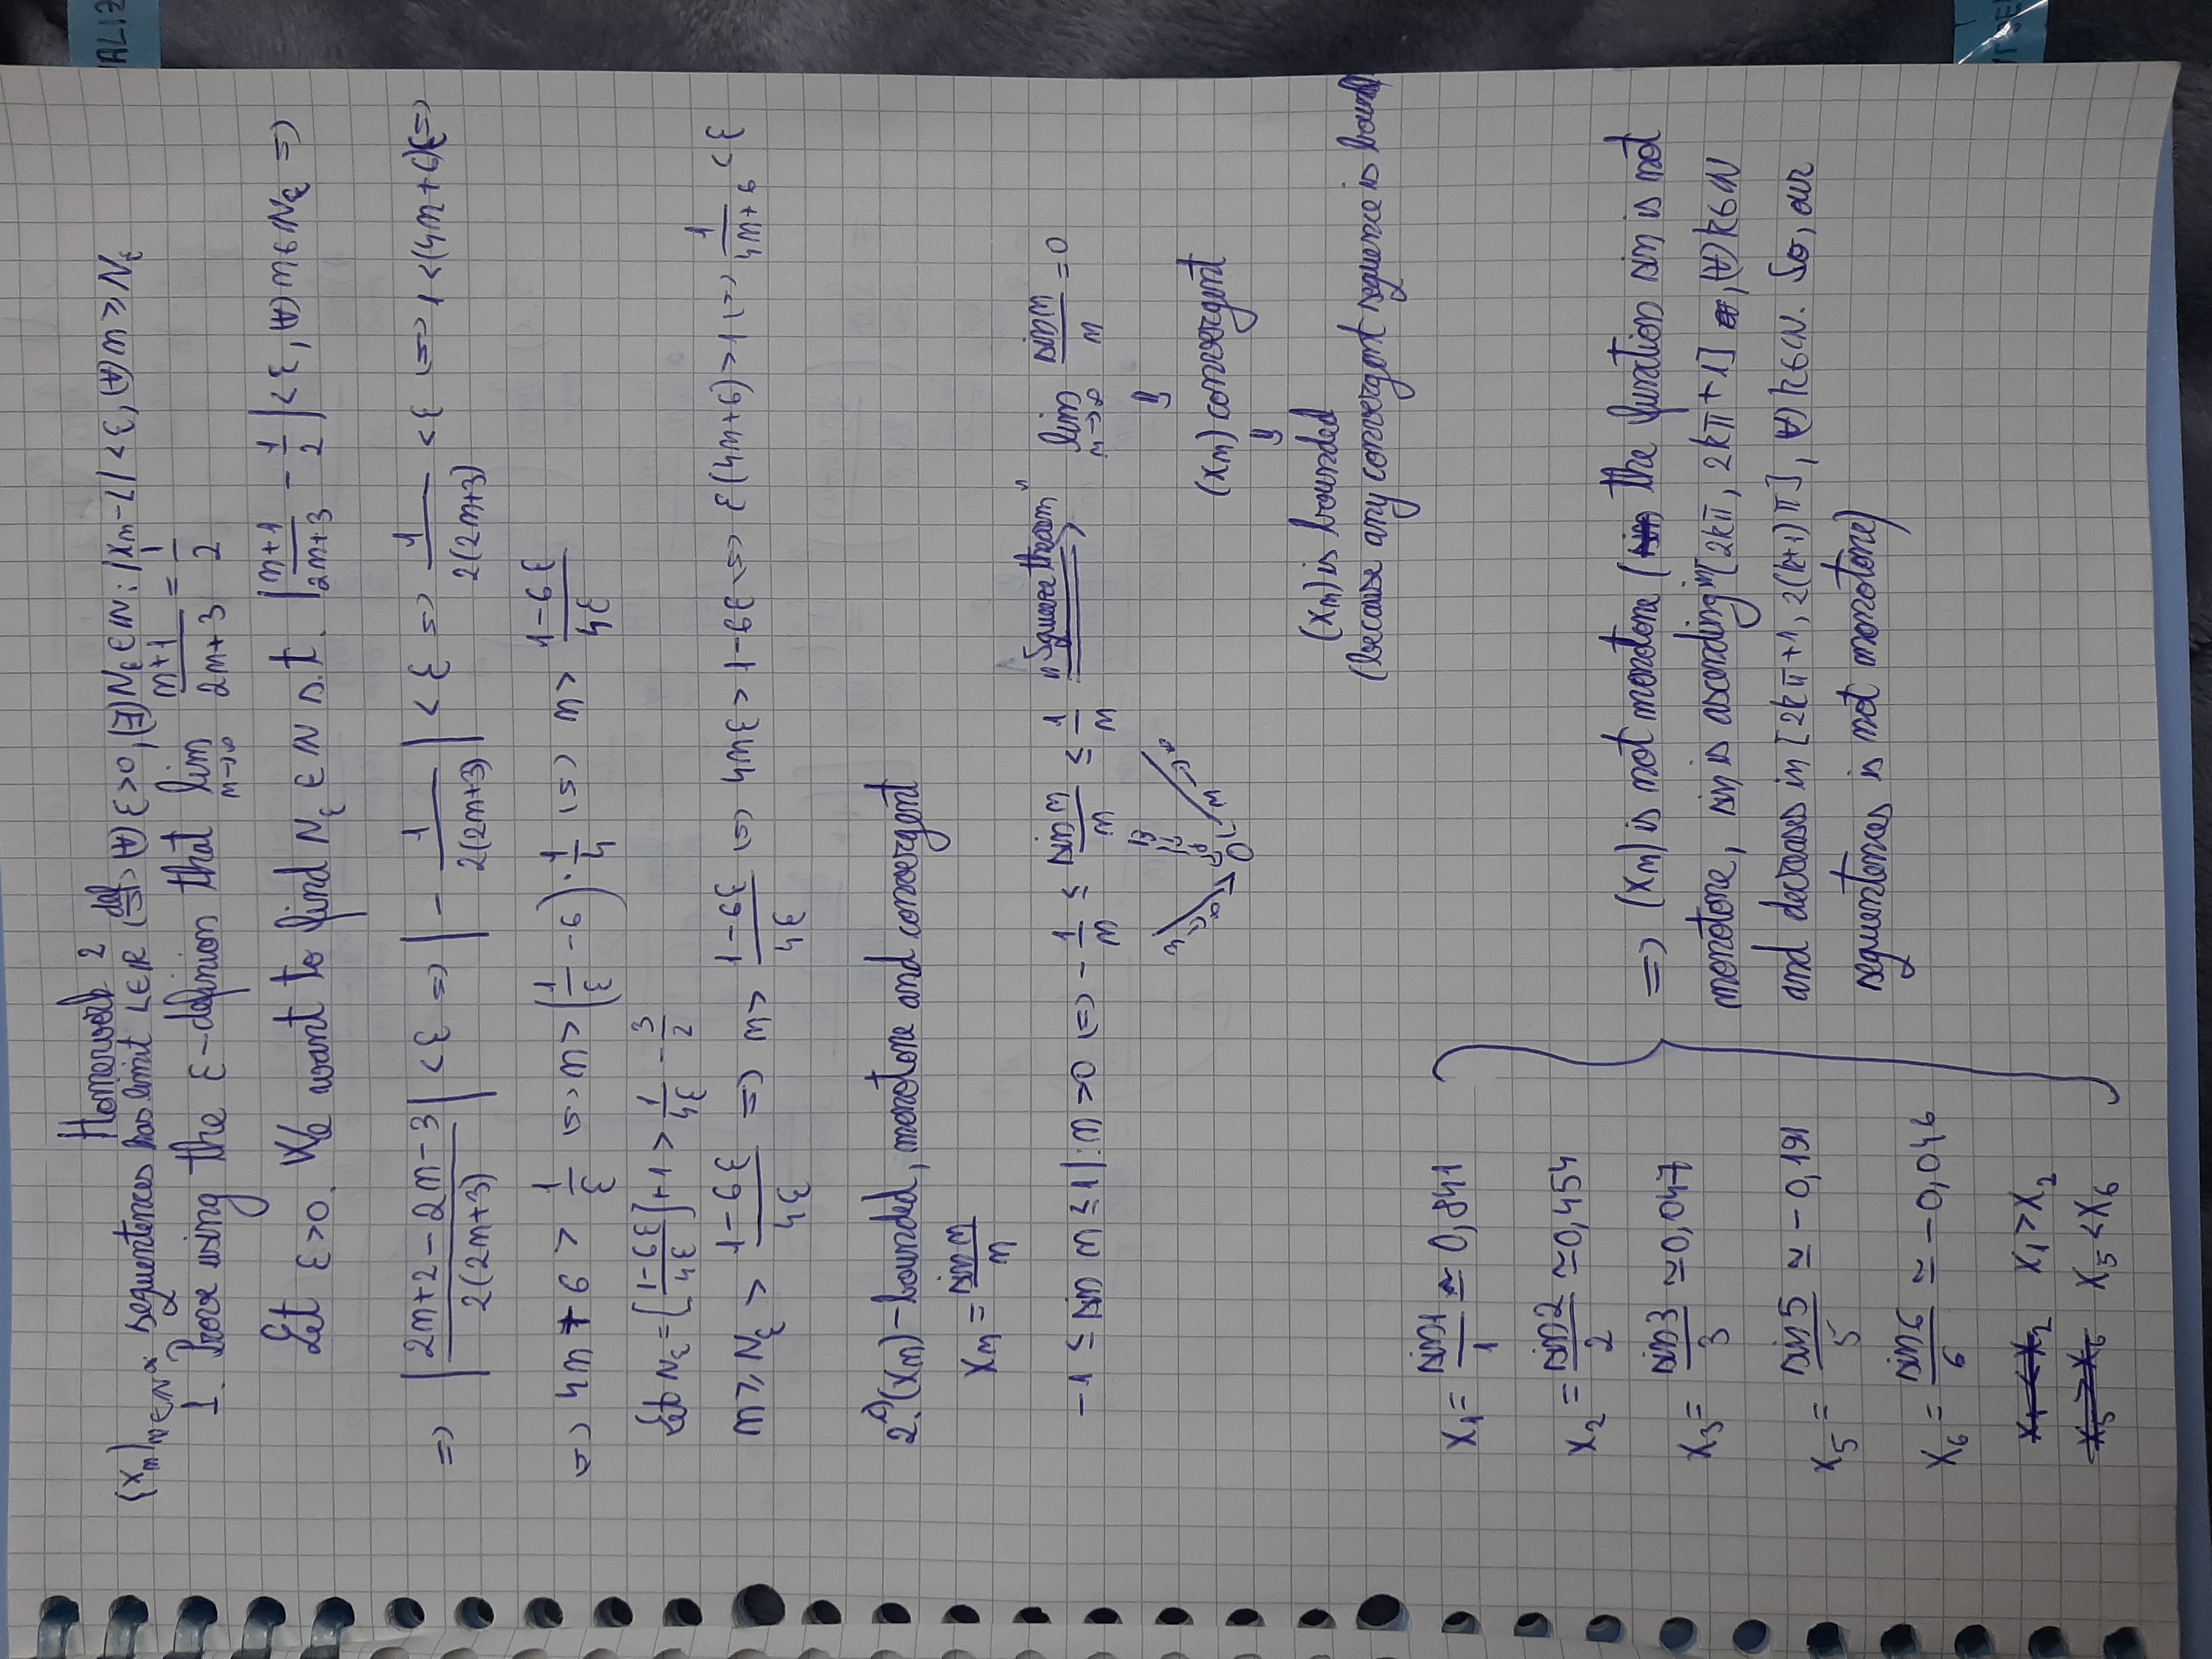 Homework 2
(xn)n∈N* sequentences has limit L∈R (def <=>) (∀) ε>0, (∃) Nε ∈ IN : |xn-L| < ε, (∀) n ≥ Nε
1. Prove using the ε-definion that lim n→∞ (n+1)/(2n+3) = 1/2
Let ε>0. We want to find Nε ∈ IN s.t. |(n+1)/(2n+3) - 1/2| < ε, (∀) n ∈ INε =>
=> |(2n+2-2n-3)/(2(2n+3))| < ε => |-1/(2(2n+3))| < ε => 1/(2(2n+3)) < ε <=> 1 < (4n+6)ε =>
<=> 4n+6 > 1/ε <=> n > (1/ε - 6)·1/4 <=> n > (1-6ε)/(4ε)
Let Nε = [(1-6ε)/(4ε)]+1 > 1/(4ε) - 3/2
n ≥ Nε > (1-6ε)/(4ε) => n > (1-6ε)/(4ε) <=> 4nε > 1-6ε <=> ε(4n+6) > 1 <=> 1/(4n+6) < ε
2. c) (xn) - bounded, monotone and convergent
xn = sin n/n
-1 ≤ sin n ≤ 1 |: n >0 <=> -1/n ≤ sin n/n ≤ 1/n "Squeeze theorem" => lim n→∞ sin n/n = 0
n→∞ n→∞ n→∞
0
⇓
(xn) convergent
⇓
(xn) is bounded
(because any convergent sequence is bound
x1 = sin1/1 ≃ 0,841
x2 = sin2/2 ≃ 0,454
x3 = sin3/3 ≃ 0,047
x5 = sin5/5 ≃ -0,191
x6 = sin6/6 ≃ -0,046
x1 < x2 x1 > x2
x5 > x6 x5 < x6
=> (xn) is not monotone (sin the function sin is not
monotone, sin is ascending in [2kπ, 2kπ+1], (∀) k∈IN
and decreases in [2kπ+1, 2(k+1)π], (∀) k∈IN. So, our
sequentences is not monotone)
ALIZ